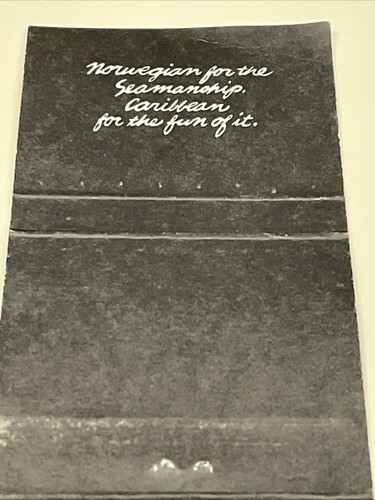 Norwegian for the
Seamanship.
Caribbean
for the fun of it.